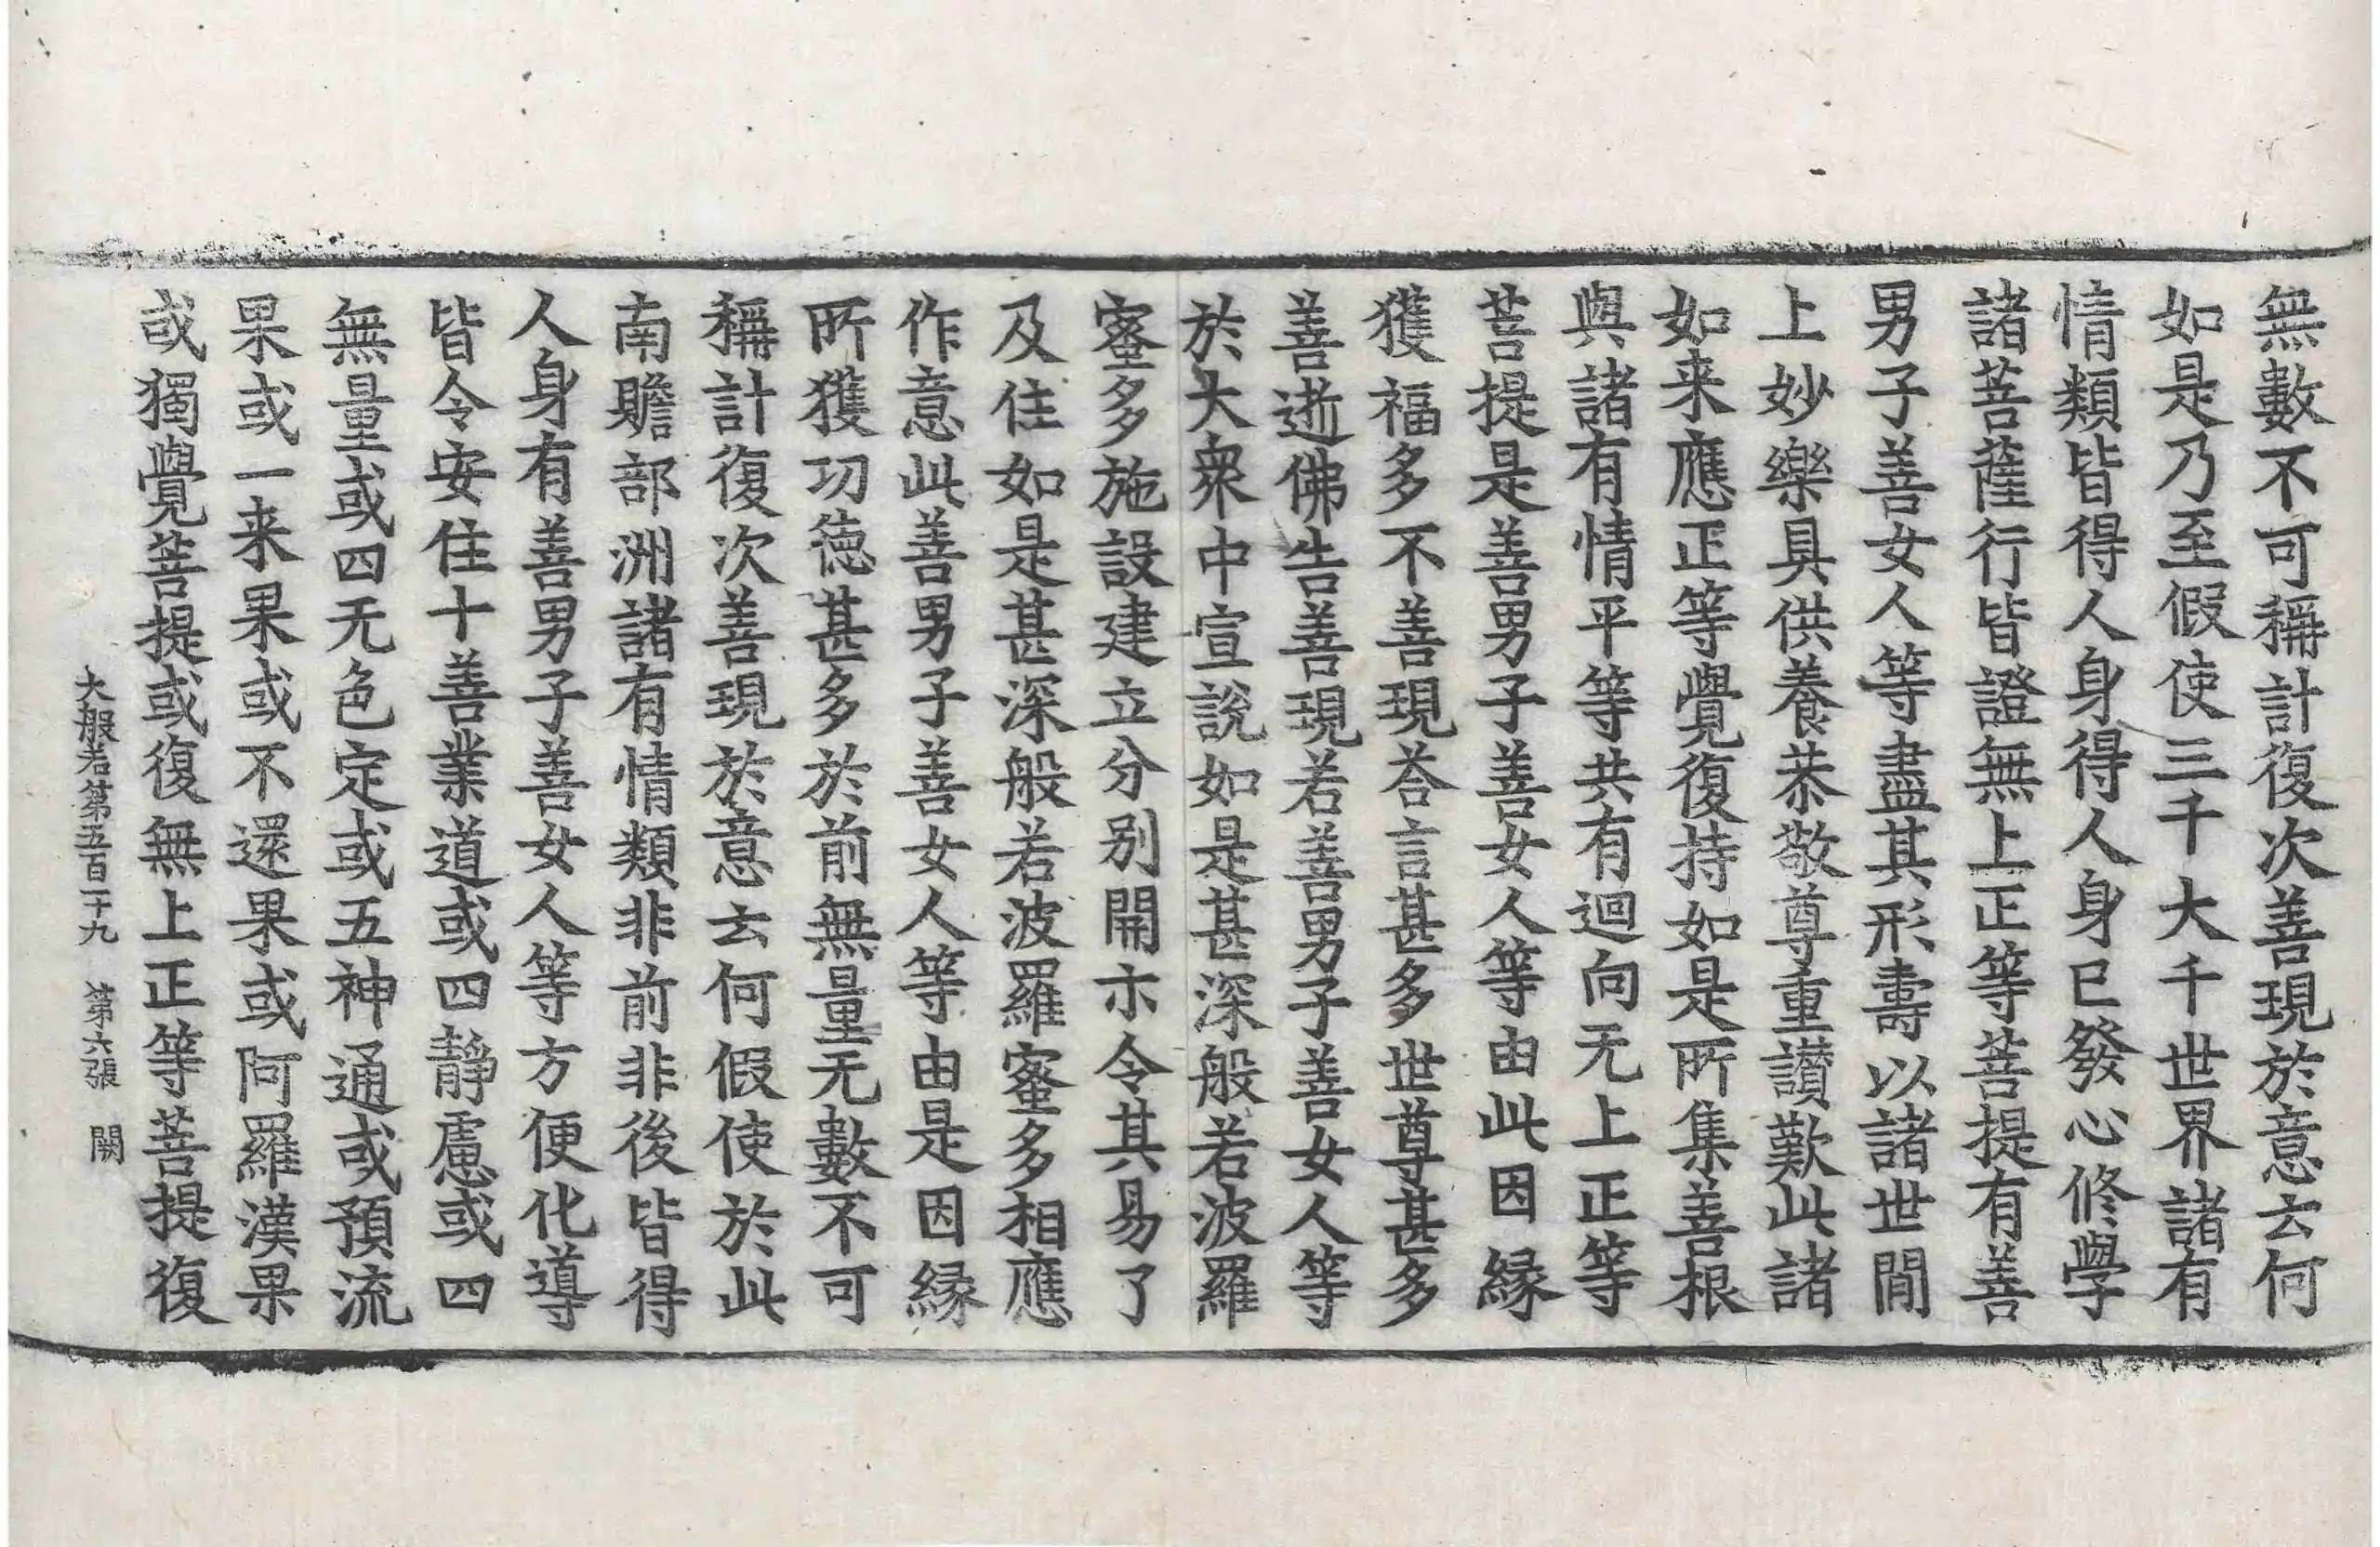 無數不可稱計復次善現於意云何
如是乃至假使三千大千世界諸有
情類皆得人身得人身已發心修學
諸菩薩行皆證無上正等菩提有善
男子善女人等盡其形壽以諸世間
上妙樂具供養恭敬尊重讃歎此諸
如来應正等覺復持如是所集善根
與諸有情平等共有迴向无上正等
菩提是善男子善女人等由此因緣
獲福多不善現荅言甚多世尊甚多
善逝佛告善現若善男子善女人等
於大衆中宣說如是甚深般若波羅
蜜多施設建立分別開示令其易了
及住如是甚深般若波羅蜜多相應
作意此善男子善女人等由是因緣
所獲功德甚多於前無量无數不可
稱計復次善現於意云何假使於此
南贍部洲諸有情類非前非後皆得
人身有善男子善女人等方便化導
皆令安住十善業道或四靜慮或四
無量或四无色定或五神通或預流
果或一来果或不還果或阿羅漢果
或獨覺菩提或復無上正等菩提復
大般若第五百二十九 第六張 闕